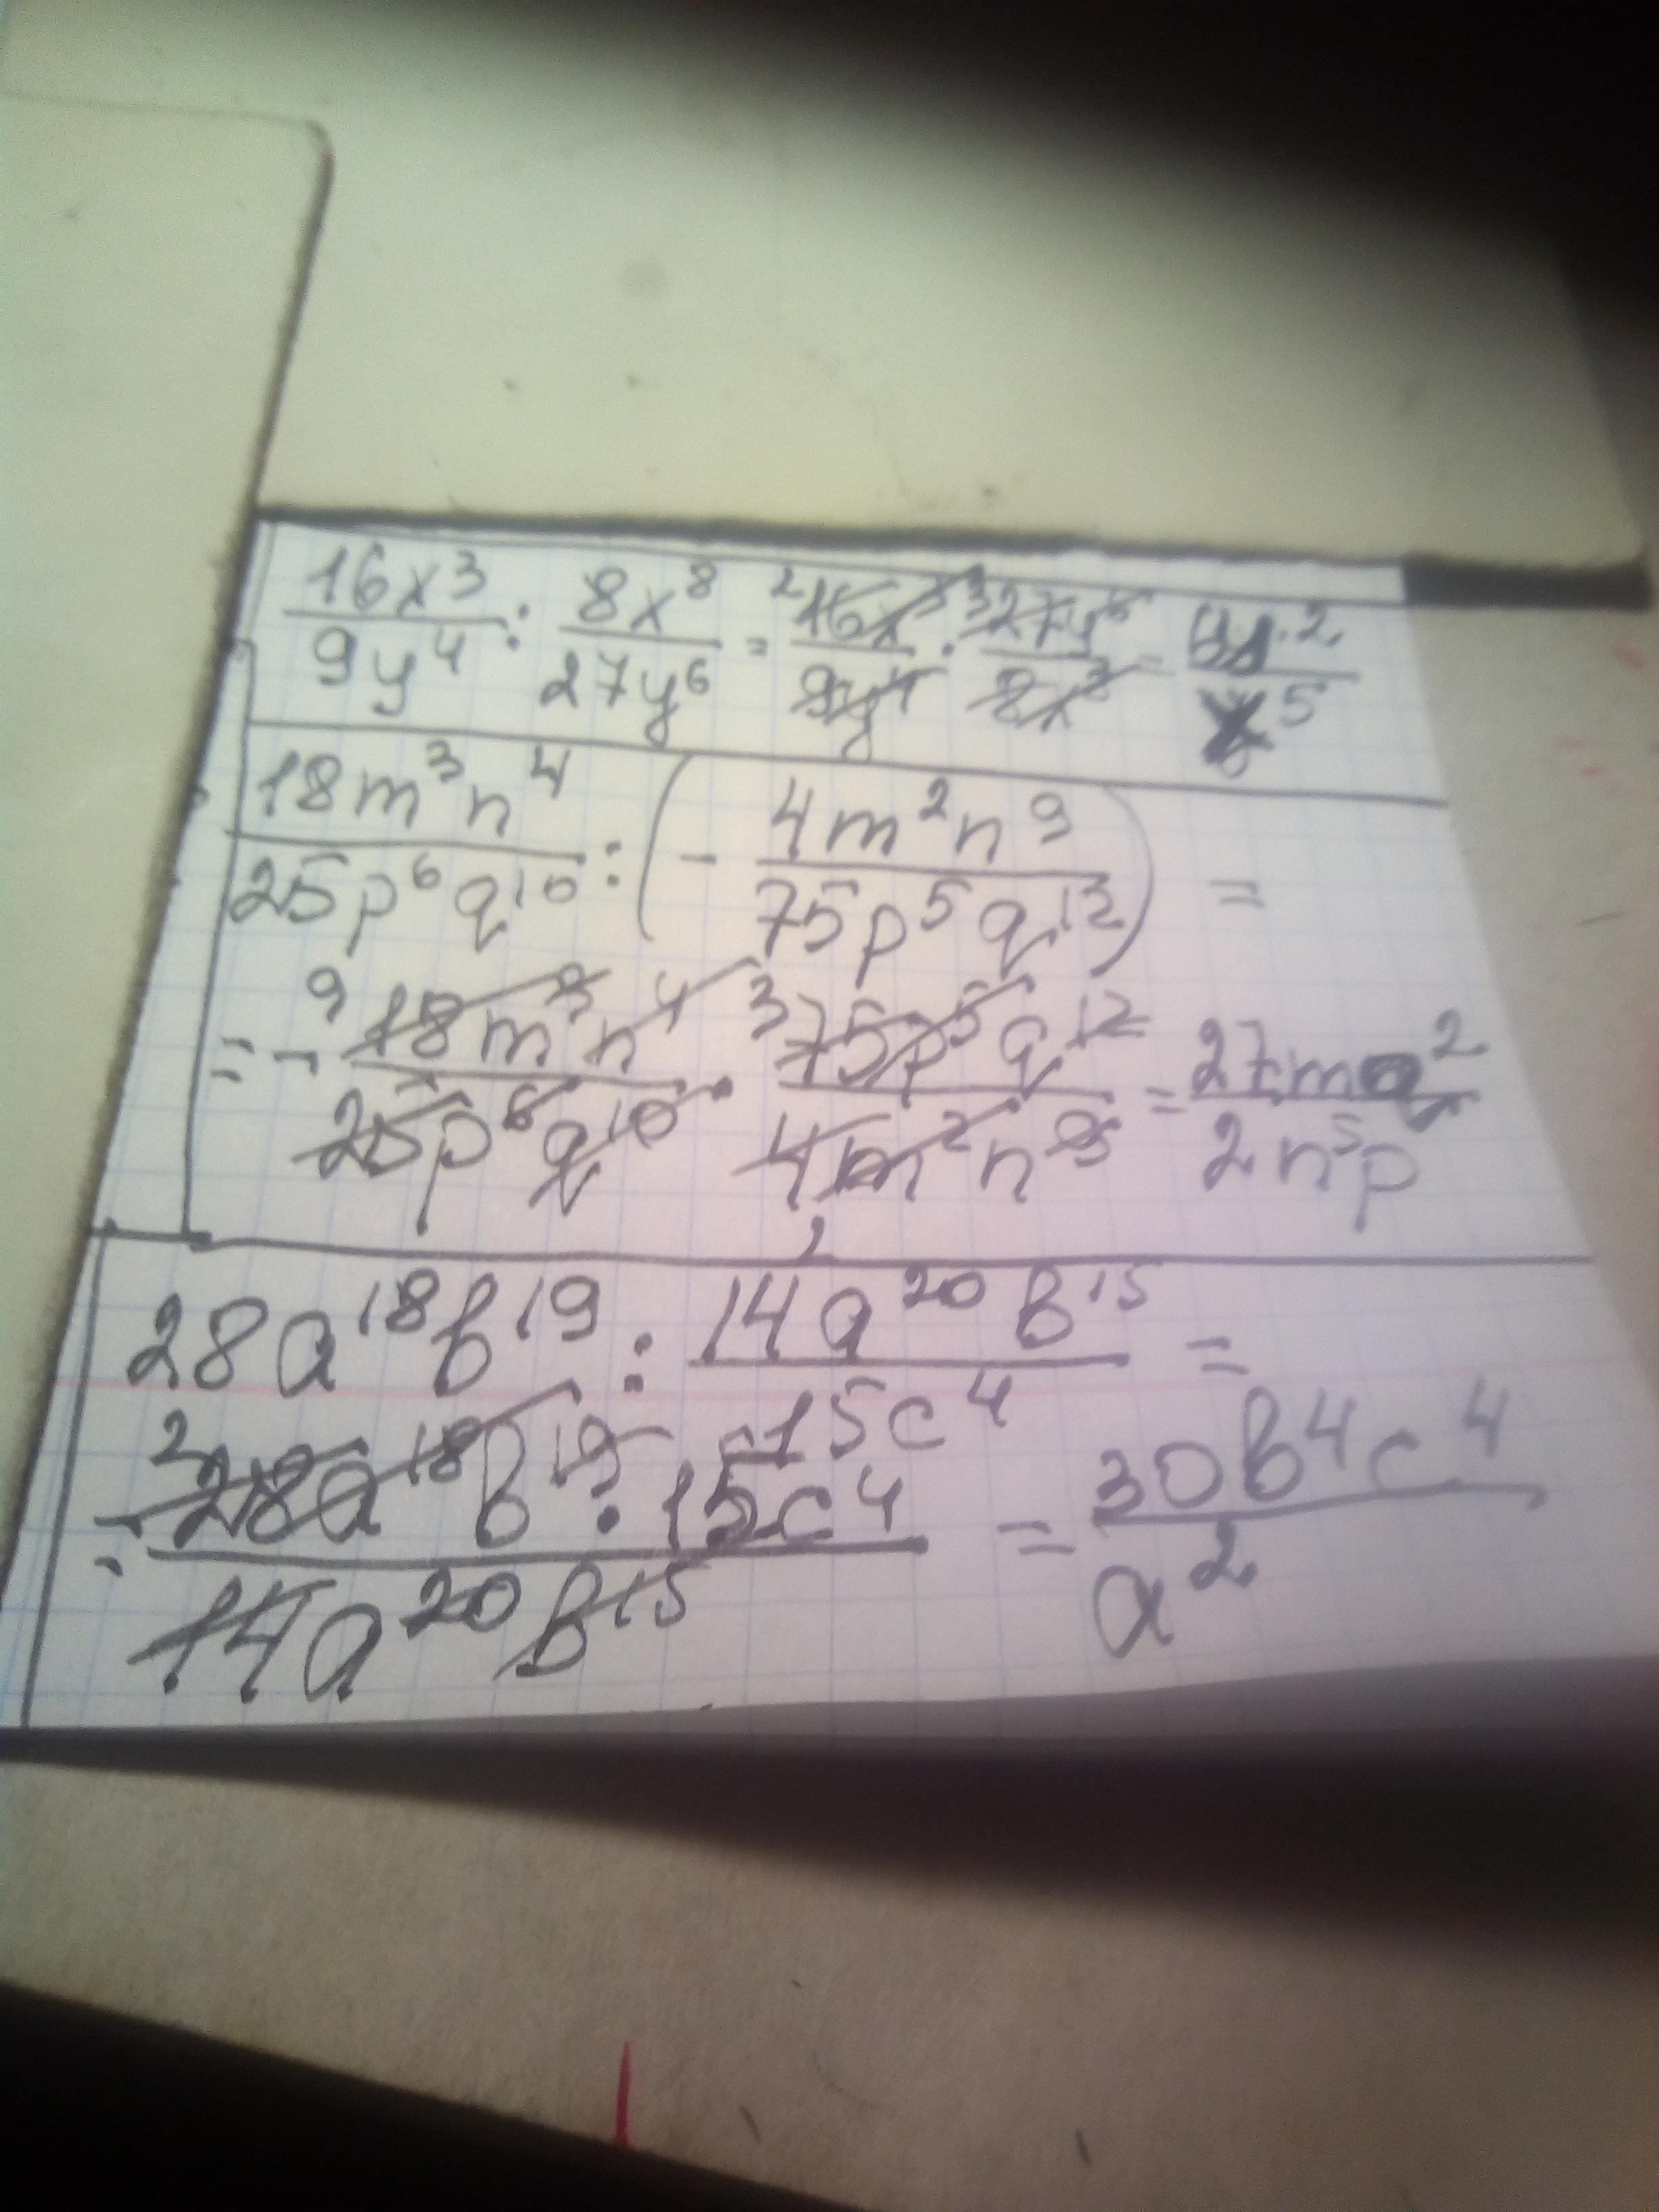 16x³/9y⁴ : 8x⁸/27y⁶ = ²16x³/9y⁴ · ³27y⁶/8x⁸ = 6y²/x⁵
18m³n⁴/25p⁶q¹⁰ : (- 4m²n⁹/75p⁵q¹²) =
= - ⁹18m³n⁴/25p⁶q¹⁰ · ³75p⁵q¹²/4m²n⁹ = 27mq²/2n⁵p
2
28a¹⁸b¹⁹ : 14a²⁰b¹⁵/15c⁴ =
= ²28a¹⁸b¹⁹ · 15c⁴/14a²⁰b¹⁵ = 30b⁴c⁴/a²